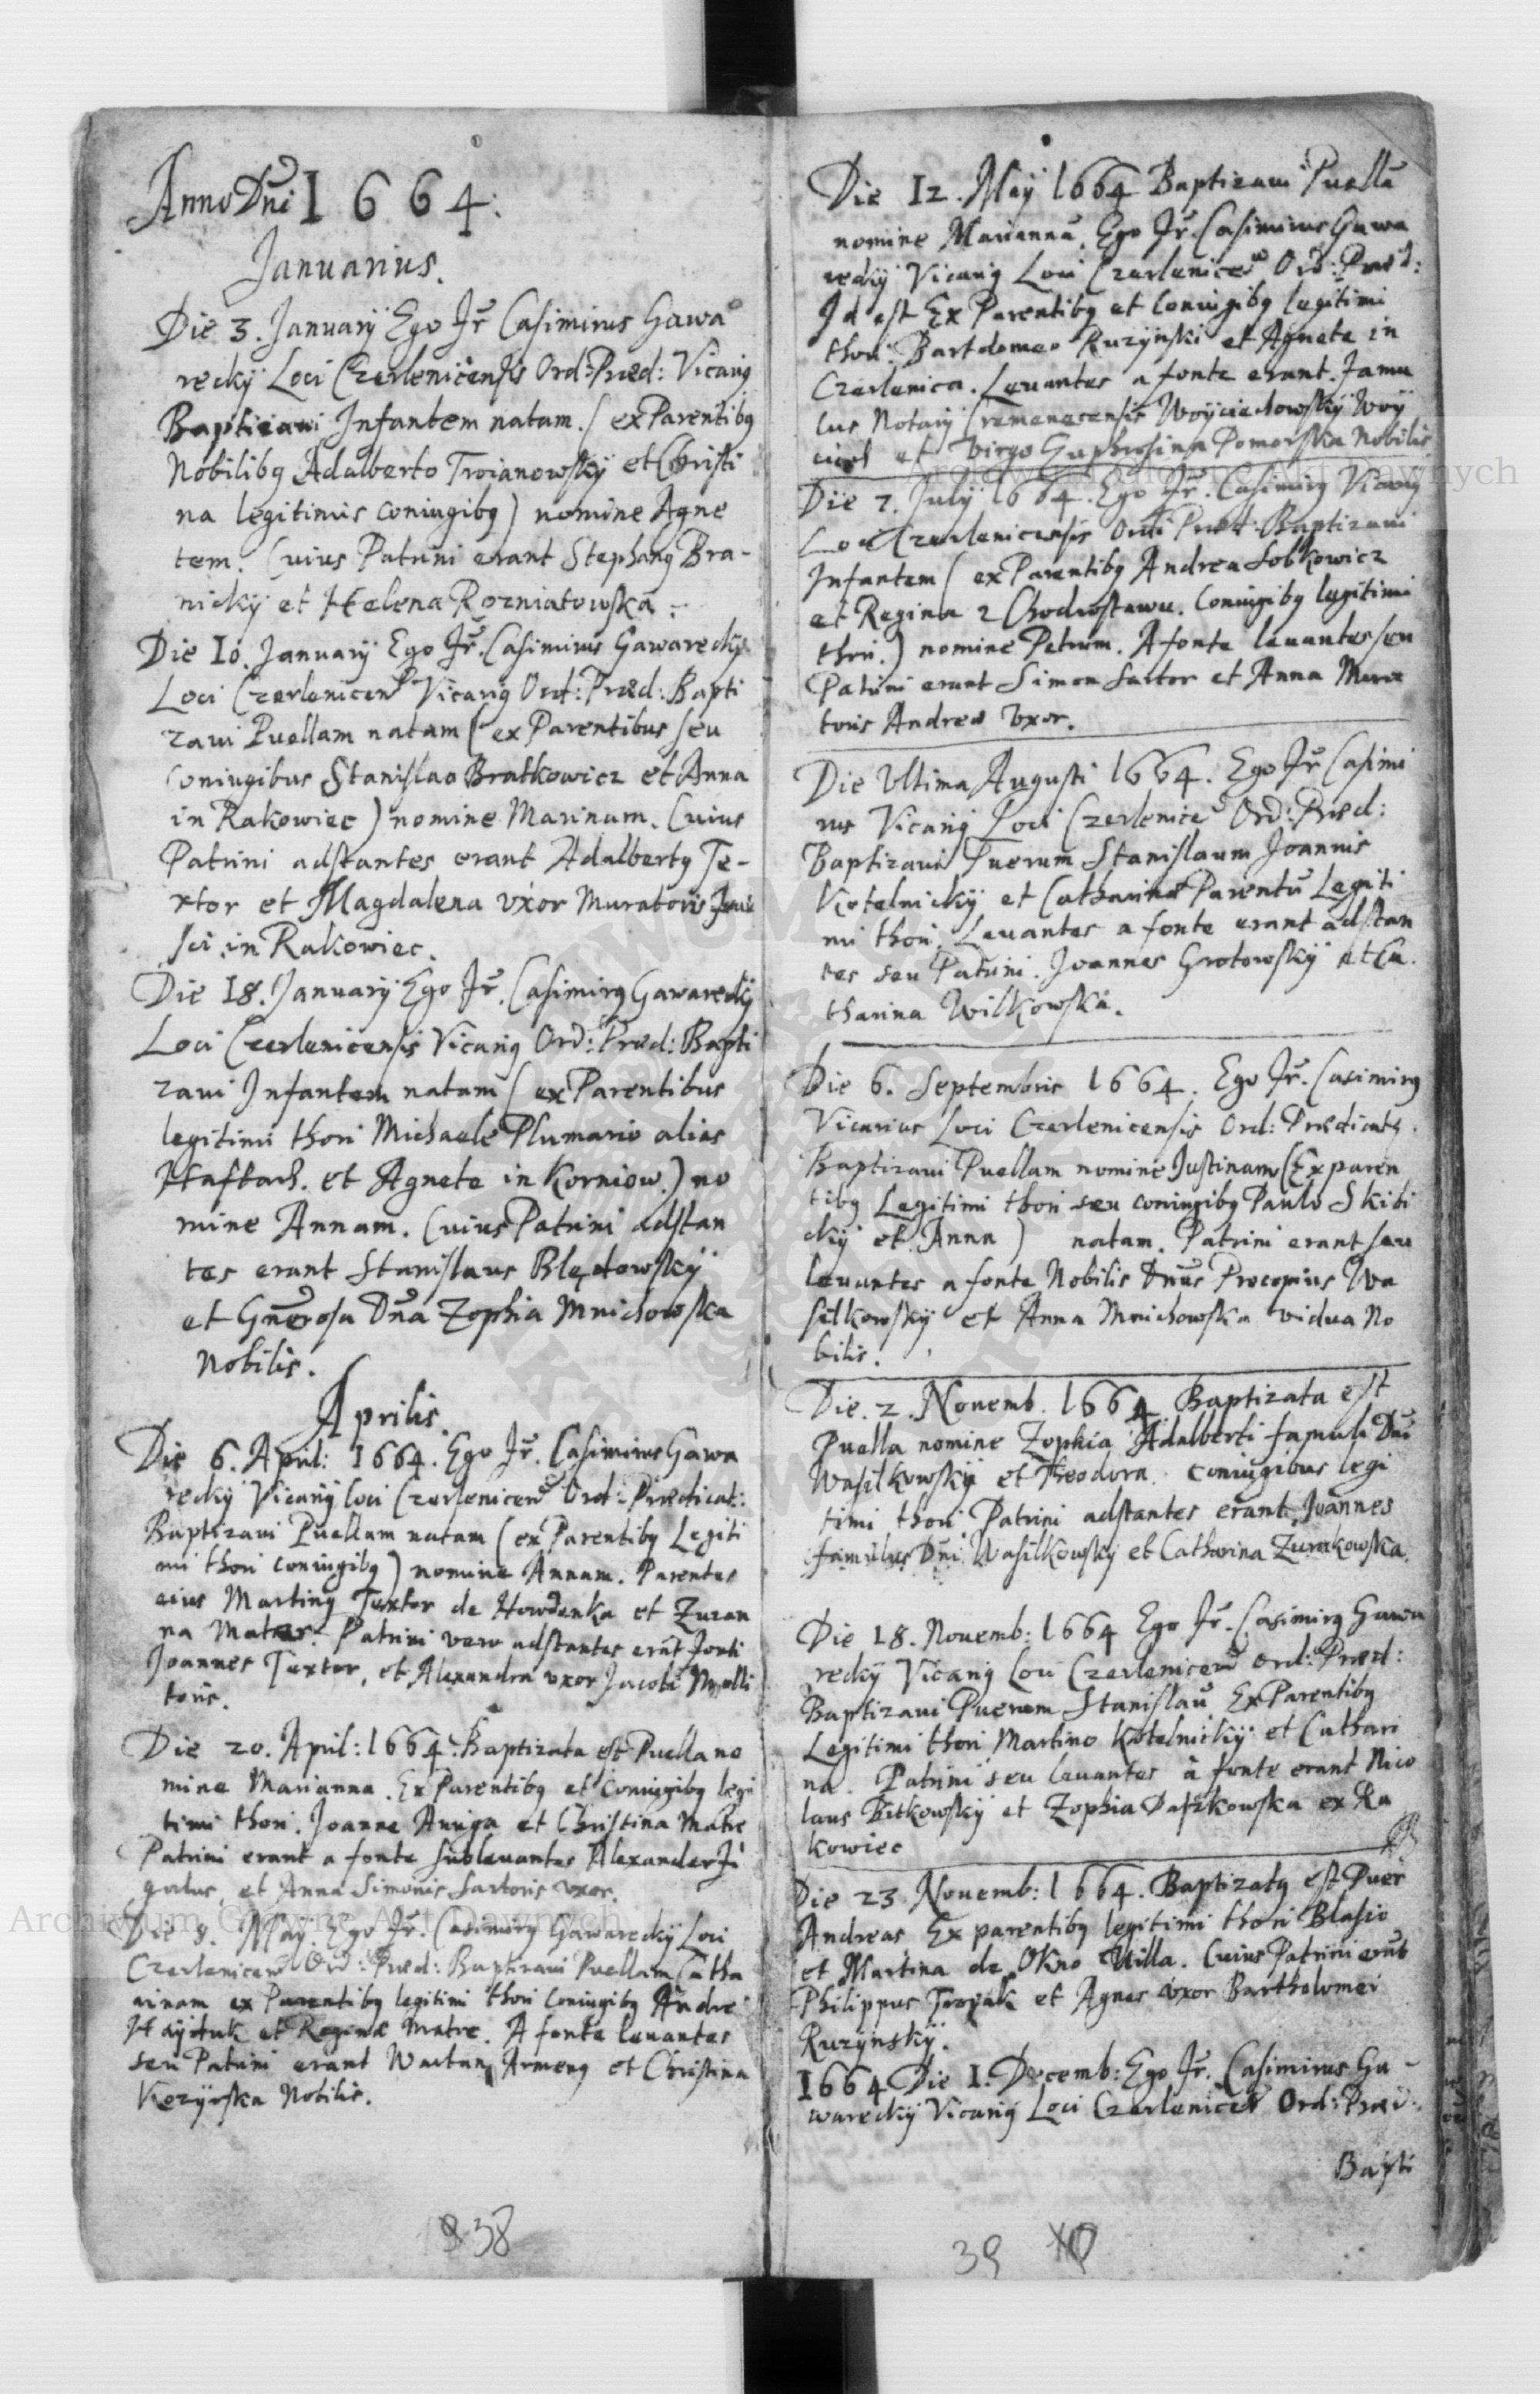 Anno Dni 1664.
Januarius.
Die 3. Januarÿ Ego Fr Casimirus Gawa
reckÿ Loci Czerlenicensis Ord: Præd: Vicariq
Baptizaui Infantem natam. (ex Parentibq
Nobilibq Adalberto Troianowskÿ et Christi
na legitimis coniugibq) nomine Agne
tem. Cuius Patrini erant Stephanq Bra-
nickÿ et Helena Rozniatowska.
Die 10. Januarÿ Ego Fr. Casimirus Gawareckÿ
Loci Czerlenicen Vicariq Ord: Præd: Bapti
zaui Puellam natam (ex Parentibus seu
Coniugibus Stanislao Bratkowicz et Anna
in Rakowiec) nomine Marinam. Cuius
Patrini adstantes erant Adalbertq Te-
xtor et Magdalena vxor Muratoris
in Rakowiec.
Die 18. Januarÿ Ego Fr. Casimirq Gawareckÿ
Loci Czerlenicensis Vicariq Ord: Præd: Bapti
zaui Infantem natam (ex Parentibus
legitimi thori Michaele Plumario alias
Haftarz. et Agnete in Korniow.) no
mine Annam. Cuius Patrini adstan
tes erant Stanislaus Blędowskÿ
et Gnerosa Dna Zophia Mnichowska
Nobilis.
Aprilis.
Die 6. April: 1664. Ego Fr. Casimirus Gawa
reckÿ Vicariq loci Czerlenicen Ord: Prædicat:
Baptizaui Puellam natam (ex Parentibq Legiti
mi thori coniugibq) nomine Annam. Parentes
eius Martinq Textor de Howdenka et Zuzan
na Mater. Patrini vero adstantes erāt fonti
Joannes Textor, et Alexandra vxor Jacobi Molli
toris.
Die 20. April: 1664. Baptizata est Puella no
mine Marianna. Ex Parentibq et Coniugibq legi
timi thori. Joanne Auriga et Christina Matre
Patrini erant a fonte subleuantes Alexander Fi
gulus, et Anna Simonis Sartoris vxor.
Die 8. May. Ego Fr. Casimirq Gawareckÿ Loci
Czerlenicen Ord: Præd: Baptizaui Puellam Catha
rinam ex Parentibq legitimi thori coniugibq Andre
Haÿduk et Reginæ Matre. A fonte leuantes
seu Patrini erant Wartan Armenq et Christina
Nobilis.
38
Die 12. Maÿ 1664 Baptizaui Puellā
nomine Mariannā. Ego Fr. Casimirus Gawa
reckÿ Vicariq Loci Czerlenicen Ord: Præd:
Id est Ex Parentibq et Coniugibq legitimi
thori. Bartolomeo Ruzÿnski et Agnete in
Czerlenica. Leuantes a fonte erant. Famu
lus Notarÿ Cremenecensis Woÿciechowskÿ Woÿ
ciech et Virgo Euphrosina Pomorska Nobilis
Die 7. Julÿ 1664. Ego Fr. Casimirq Vicariq
Loci Czerlenicensis Ordi Præd: Baptizaui
Infantem (ex Parentibq Andrea Sobkowicz
et Regina z Chodrostawu. Coniugibq legitimi
thori.) nomine Petrum. A fonte leuantes seu
Patrini erant Simon Sartor et Anna Mura
toris Andreæ vxor.
Die Vltima Augusti 1664. Ego Fr Casimi
rus Vicariq Loci Czerlenicē Ord: Præd:
Baptizaui Puerum Stanislaum Joannis
Kotelnickÿ et Catharinæ Parentū Legiti
mi thori. Leuantes a fonte erant adstan
tes seu Patrini. Joannes Grotowskÿ et Ca
tharina Wilkowska.
Die 6. Septembris 1664. Ego Fr. Casimirq
Vicarius Loci Czerlenicensis Ord: Prædicatq.
Baptizaui Puellam nomine Justinam (Ex paren
tibq Legitimi thori seu coniugibq Paulo Skibi
ckÿ et Anna) natam. Patrini erant seu
leuantes a fonte Nobilis Dnus Procopius Wa
silkowskÿ et Anna Mnichowska vidua No
bilis.
Die. 2. Nouemb. 1664 Baptizata est
Puella nomine Zophia Adalberti famuli Dni
Wasilkowskÿ et Theodora. coniugibus legi
timi thori. Patrini adstantes erant Joannes
famulus Dni. Wasilkowskÿ et Catharina Zurakowska.
Die 18. Nouemb: 1664 Ego Fr. Casimirq Gawa
reckÿ Vicariq Loci Czerlenicen Ord: Præd:
Baptizaui Puerum Stanislaū Ex Parentibq
Legitimi thori Martino Kotelnickÿ et Cathari
na. Patrini seu leuantes à fonte erant Nico
laus Bitkowskÿ et Zophia Daszkowska ex Ra
kowiec
Die 23 Nouemb: 1664. Baptizatq est Puer
Andreas Ex parentibq legitimi thori Blasio
et Martina de Okno Villa. Cuius Patrini erāt
Philippus et Agnes vxor Bartholomei
Ruzÿnskÿ.
1664 Die 1. Decemb: Ego Fr. Casimirus Ga-
wareckÿ Vicariq Loci Czerlenicen Ord: Præd:
Bapti
39
Archiwum Główne Akt Dawnych
Archiwum Główne Akt Dawnych